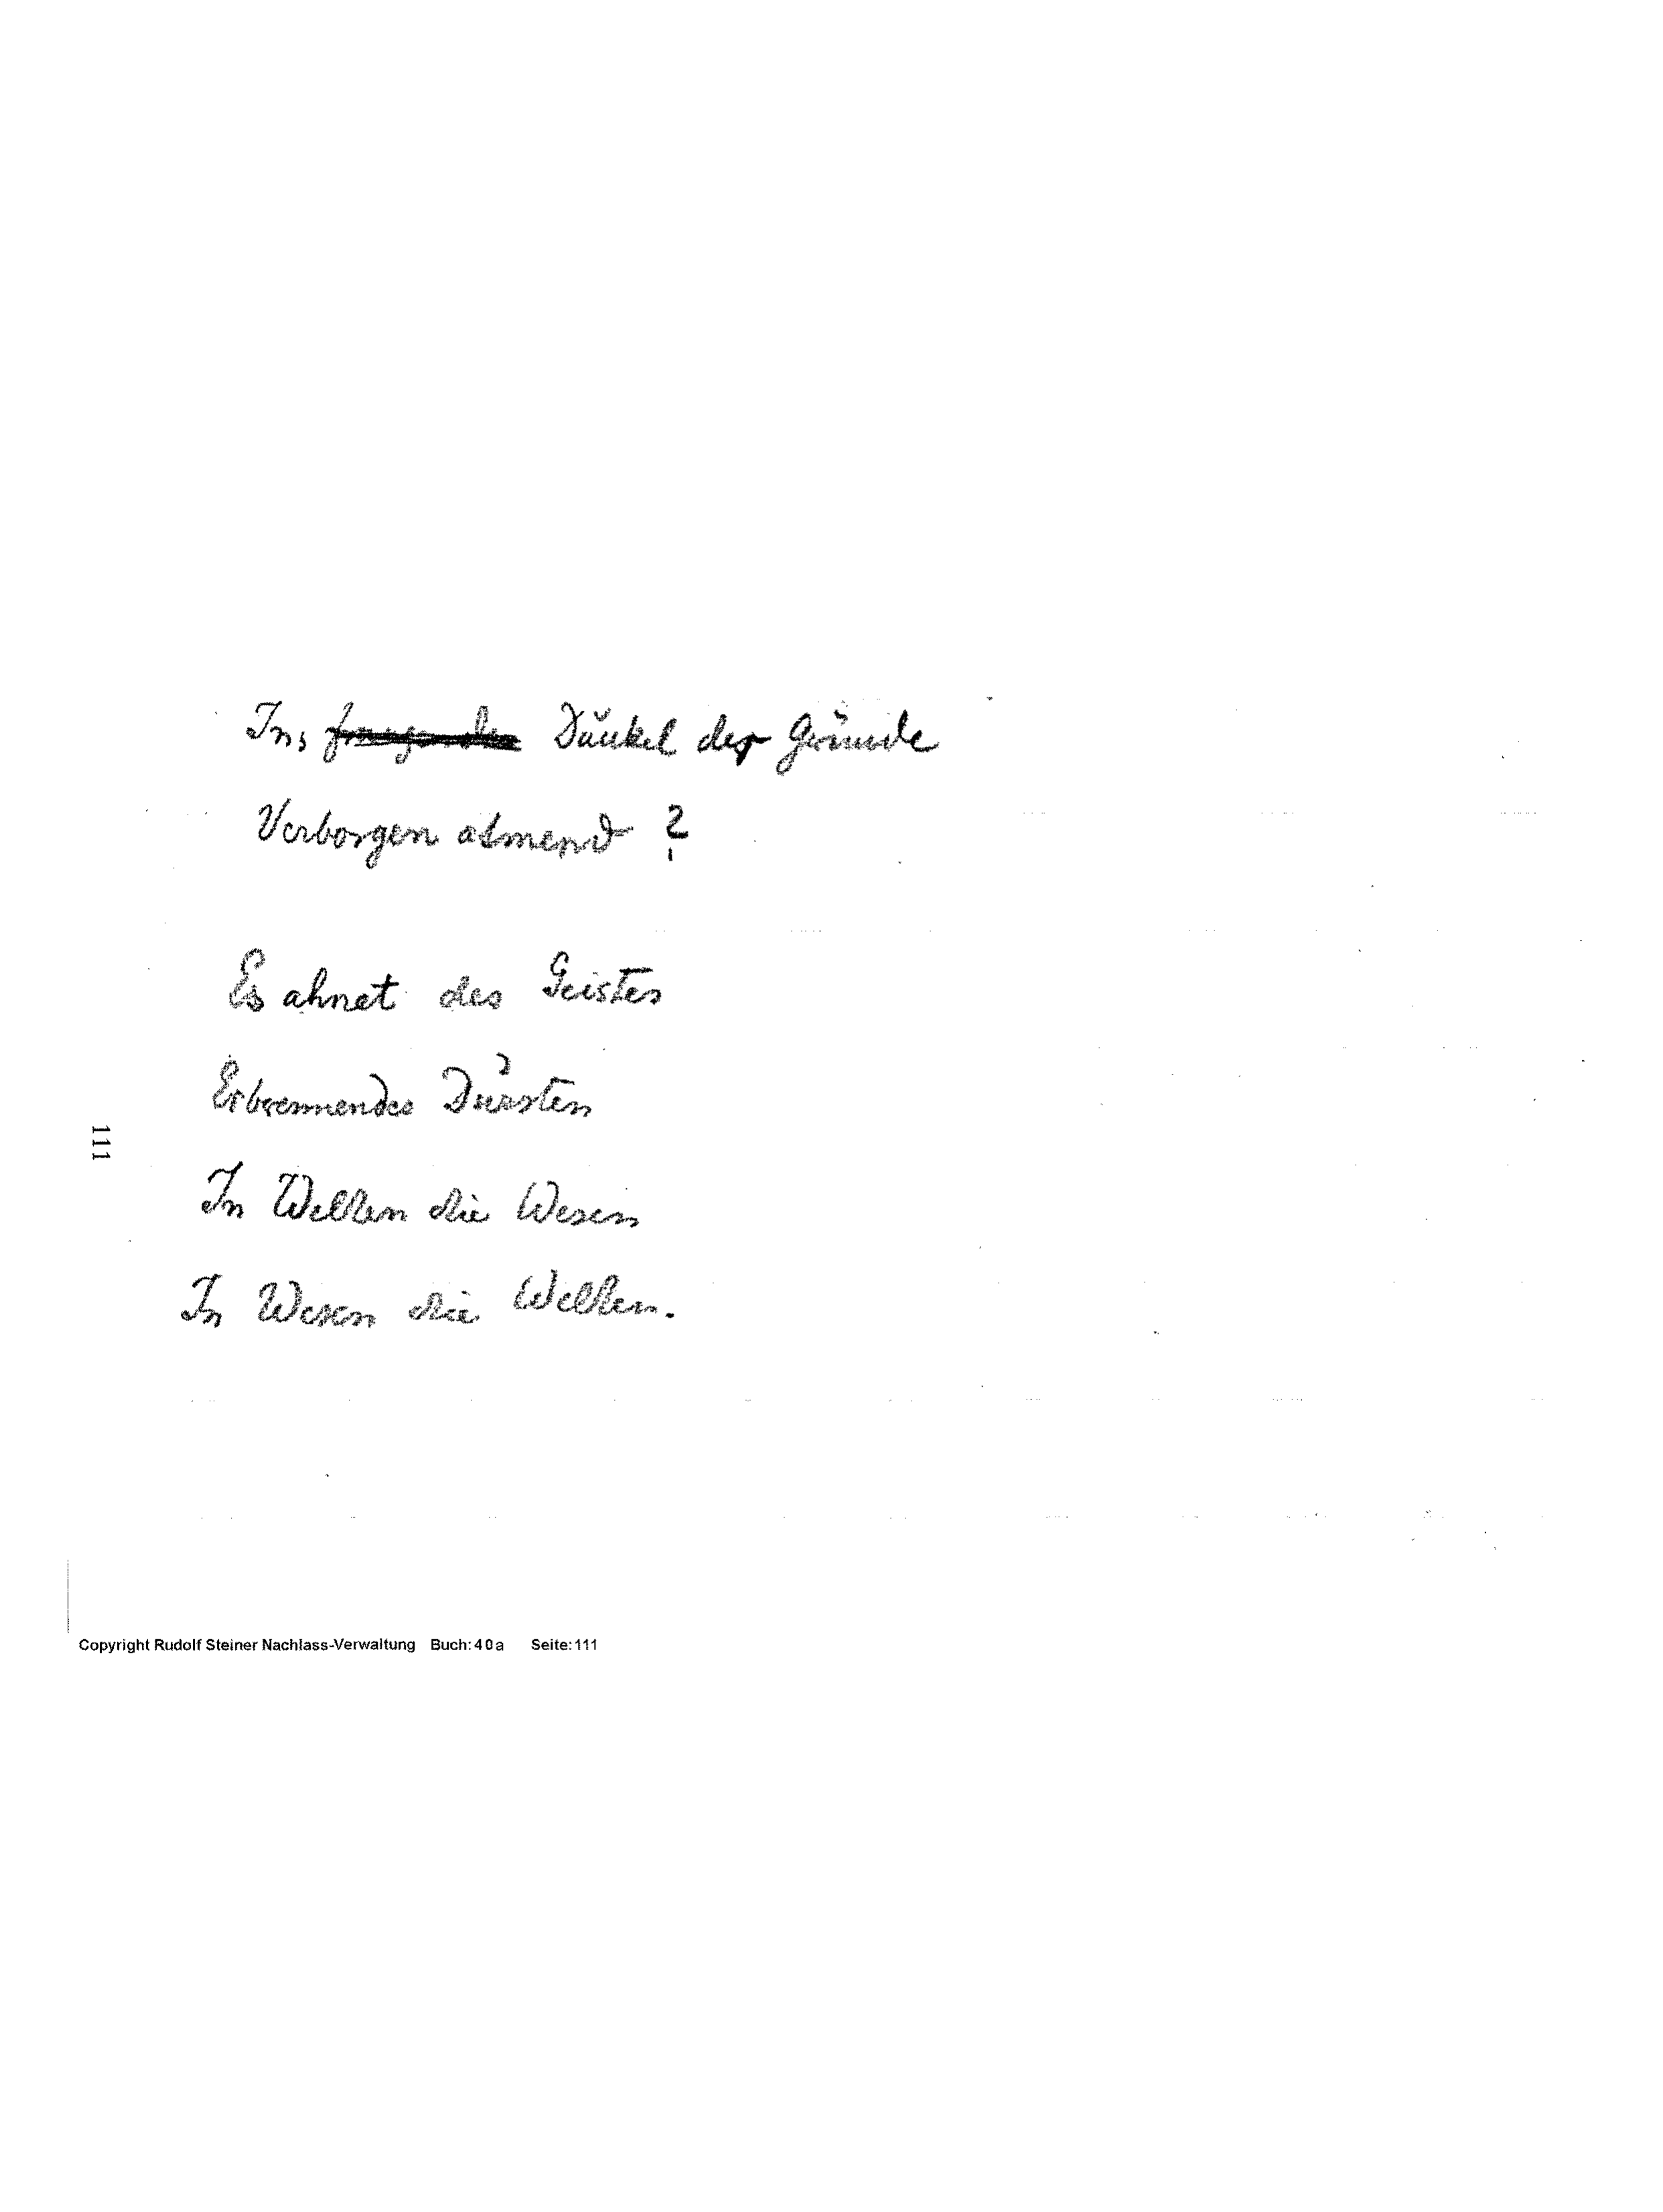 Ins Dunkel der Gründe
Verborgen atmend?
Es ahnet des Geistes
Erbrennendes Dürsten
In Welten die Wesen
In Wesen die Welten.
111
Copyright Rudolf Steiner Nachlass-Verwaltung Buch: 40a Seite: 111